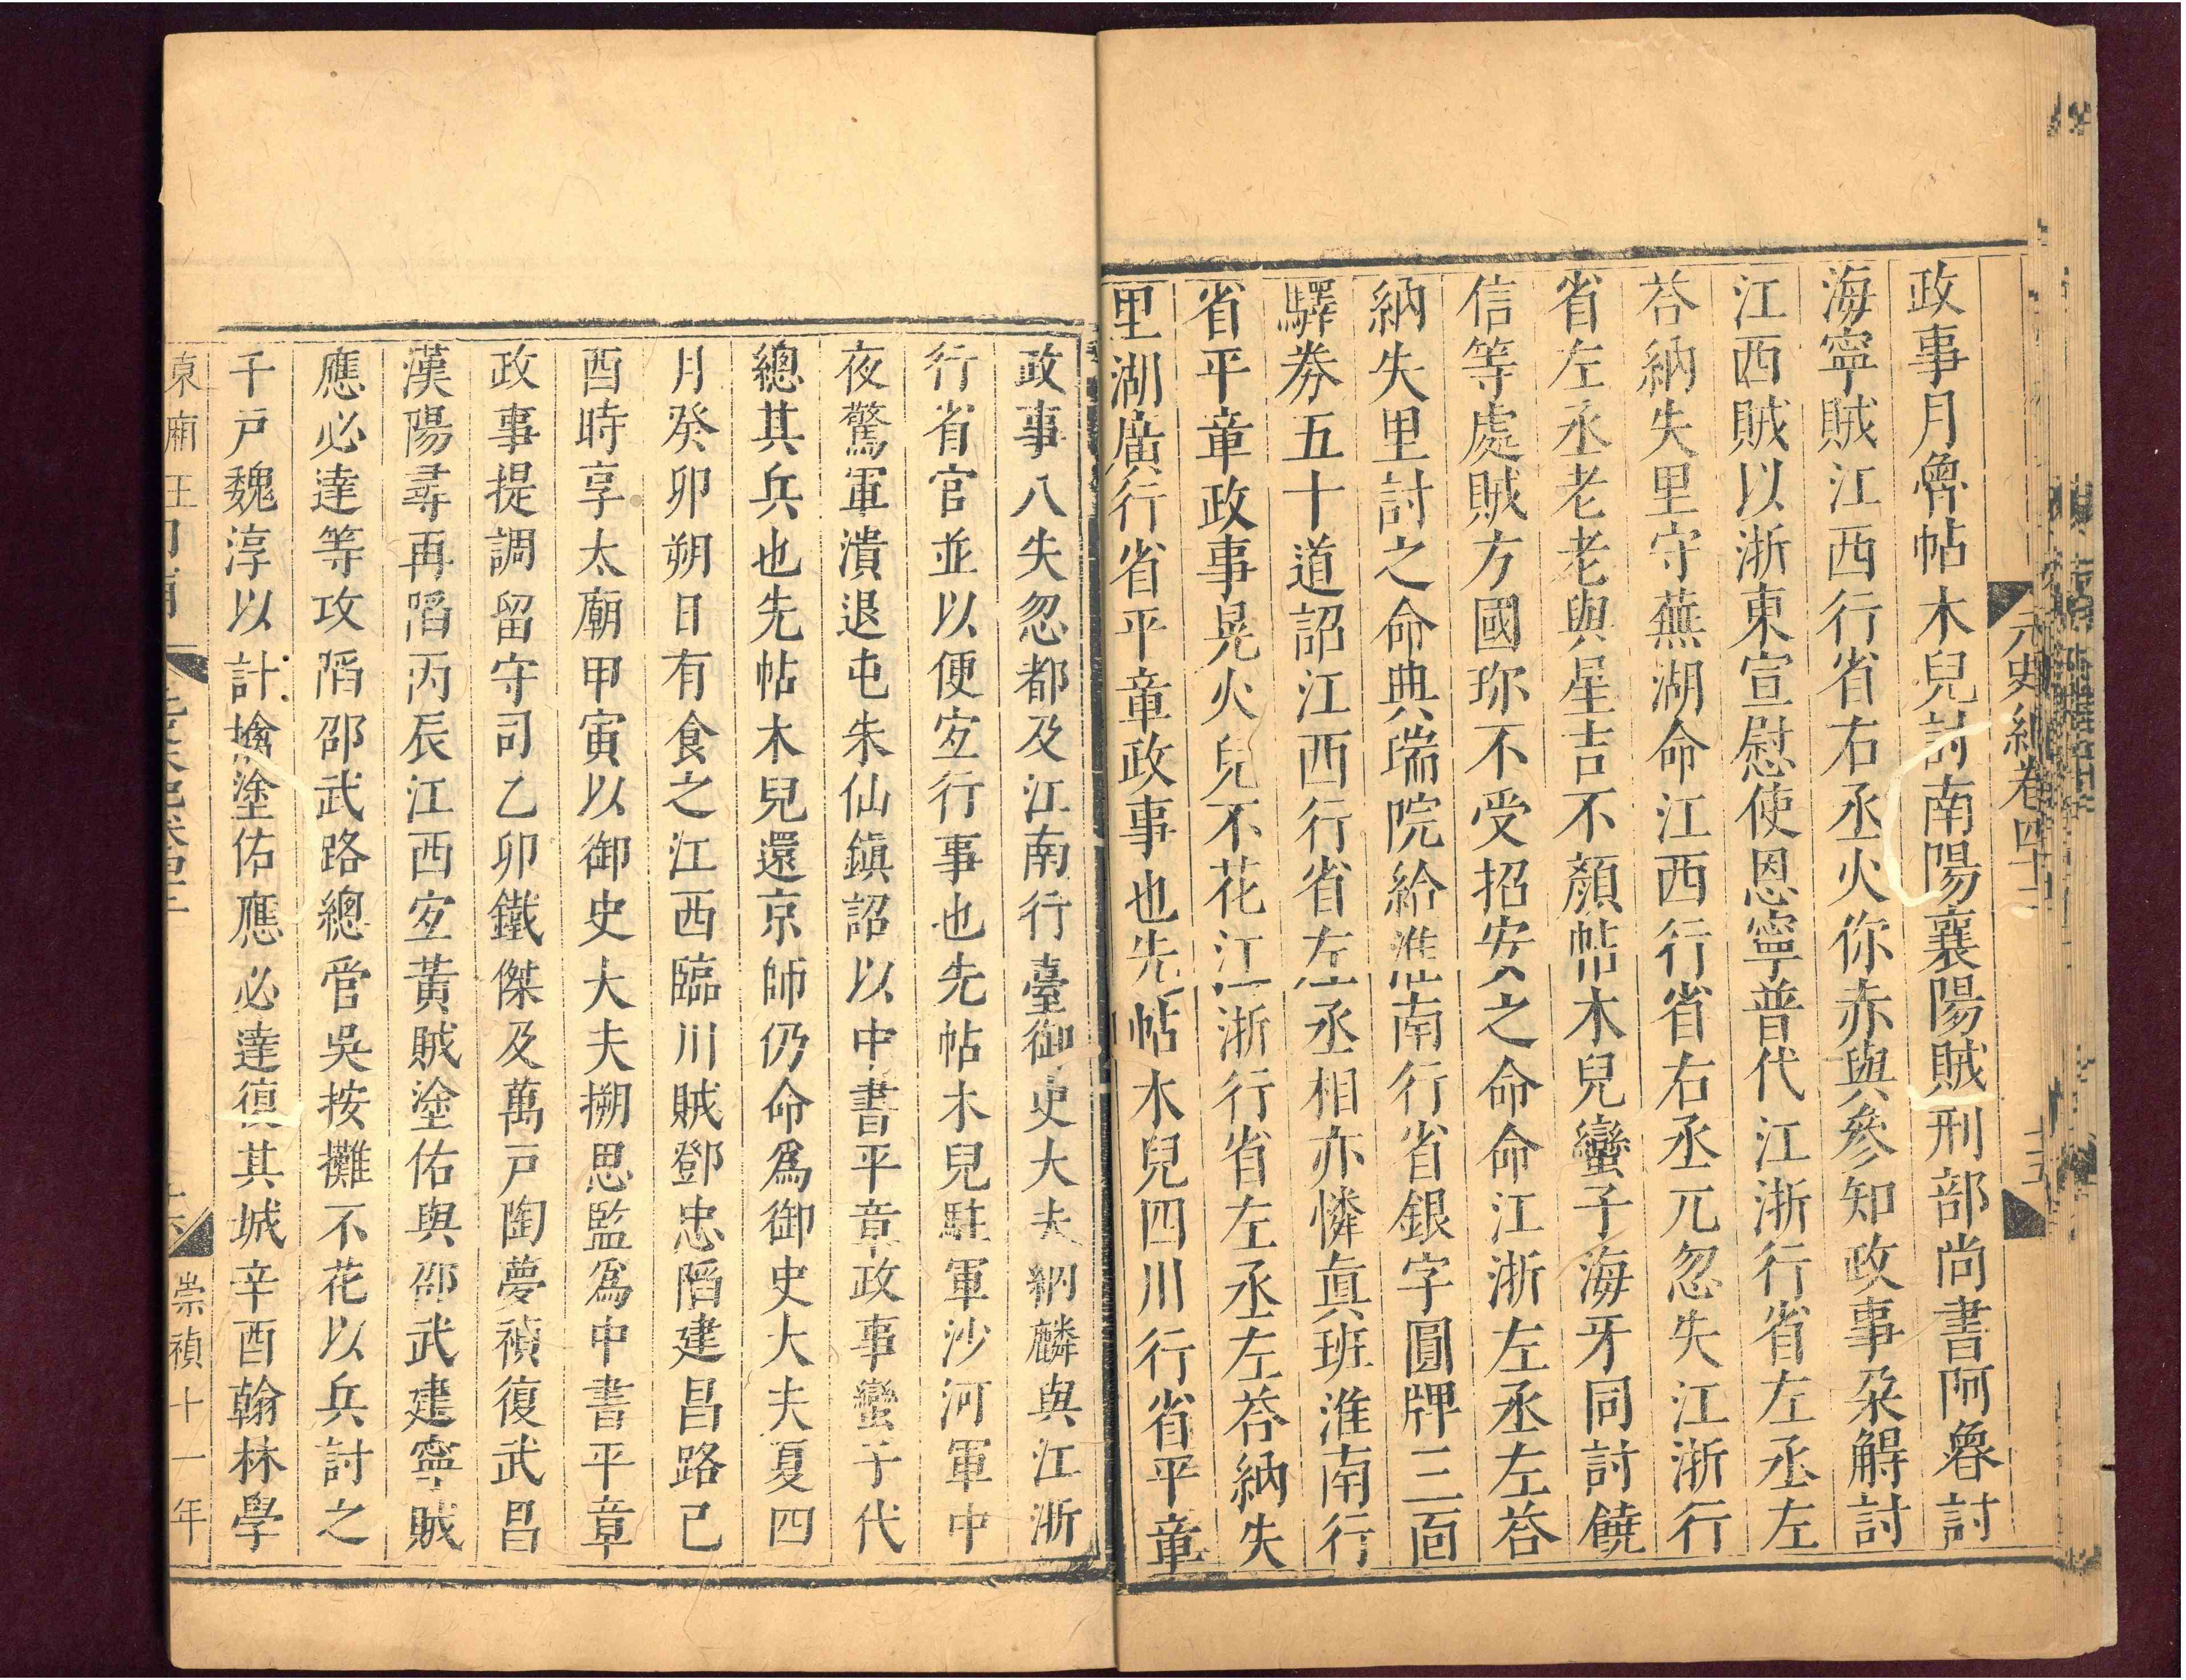 元史紀卷四十二
十五
政事月魯帖木兒討南陽襄陽賊刑部尚書阿魯討
海寧賊江西行省右丞火你赤與參知政事朶䚟討
江西賊以浙東宣慰使恩寧普代江浙行省左丞左
荅納失里守蕪湖命江西行省右丞兀忽失江浙行
省左丞老老與星吉不顏帖木兒蠻子海牙同討饒
信等處賊方國珎不受招安之命命江浙左丞左荅
納失里討之命典瑞院給淮南行省銀字圓牌三面
驛券五十道詔江西行省左丞相亦憐眞班淮南行
省平章政事晃火兒不花江浙行省左丞左荅納失
里湖廣行省平章政事也先帖木兒四川行省平章
政事八失忽都及江南行臺御史大夫納麟與江浙
行省官並以便宐行事也先帖木兒駐軍沙河軍中
夜驚軍潰退屯朱仙鎭詔以中書平章政事蠻子代
總其兵也先帖木兒還京師仍命爲御史大夫夏四
月癸卯朔日有食之江西臨川賊鄧忠䧟建昌路己
酉時享太廟甲寅以御史大夫搠思監爲中書平章
政事提調留守司乙卯鐵傑及萬戸陶夢禎復武昌
漢陽尋再䧟丙辰江西宐黃賊塗佑與邵武建寧賊
應必達等攻䧟邵武路總管吳按攤不花以兵討之
千戸魏淳以計擒塗佑應必達復其城辛酉翰林學
崇禎十一年